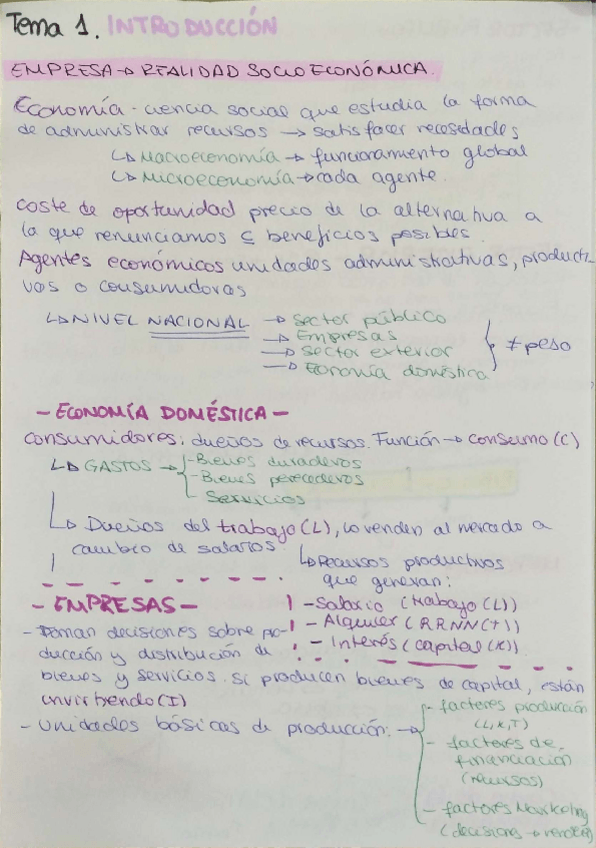 Tema 1. INTRODUCCIÓN
EMPRESA → REALIDAD SOCIOECONÓMICA.
Economía - ciencia social que estudia la forma
de administrar recursos → satisfacer necesidades
↳ Macroeconomía → funcionamiento global
↳ Microeconomía → cada agente
Coste de oportunidad precio de la alternativa a
la que renunciamos c beneficios posibles.
Agentes económicos unidades administrativas, producti-
vas o consumidoras
↳ NIVEL NACIONAL → Sector público
→ Empresas
→ Sector exterior
→ Economía doméstica
≠ peso
- ECONOMÍA DOMÉSTICA -
Consumidores; dueños de recursos. Función → consumo (C)
↳ GASTOS → - Bienes duraderos
- Bienes perecederos
- Servicios
↳ Dueños del trabajo (L), lo venden al mercado a
cambio de salarios.
↳ Recursos productivos
que generan:
- Salario (trabajo (L))
- Alquiler (RRNN (T))
- Interés (capital (K))
- EMPRESAS -
- Toman decisiones sobre pro-
ducción y distribución de
bienes y servicios. Si producen bienes de capital, están
invirtiendo (I)
- Unidades básicas de producción: →
- factores producción
(L, K, T)
- factores de
financiación
(recursos)
- factores Marketing
(decisions → vender)